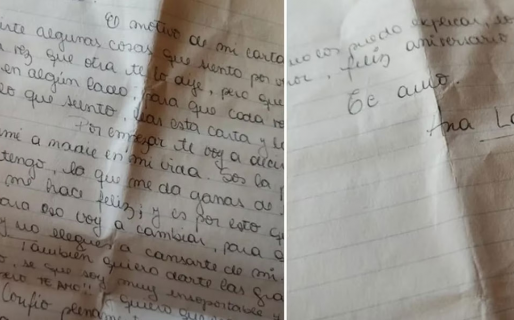 El motivo de mi carta
algunas cosas que siento por
vez que otra te lo dije, pero que
en algún lado, para que cada
lo que siento, leas esta carta y
Por empezar te voy a deci
mé a nadie en mi vida. Sos la
tengo, lo que me da ganas de
me hace feliz; y es por esto q
para eso voy a cambiar, para q
y no llegues a cansarte de mi.
También quiero darte las gra
se que soy muy insoportable y
TE AMO!!
Confío plename quiero que
puedo explicar,
feliz aniversario
Te amo.
Ana